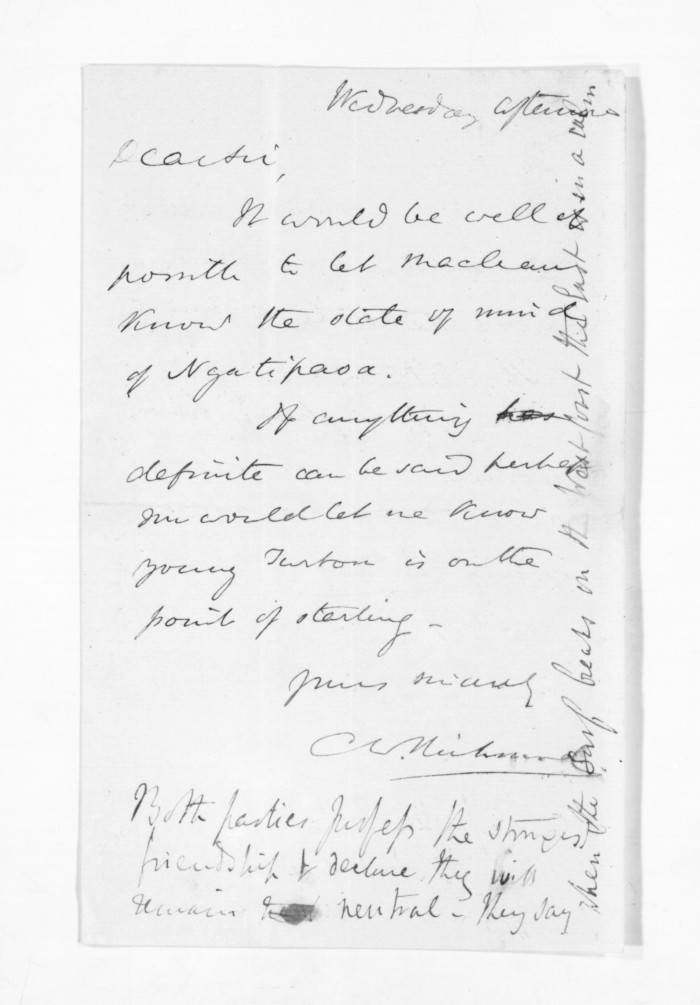 Wednesday afternoon
Dear Sir,
It would be well if
possible to let Maclean
know the state of mind
of Ngatipaoa.
If anything has
definite can be said perhaps
you would let me know
young Turton is on the
point of starting -
yours sincerely
C W Richmond
Both parties profess the strongest
friendship & declare they will
remain neutral - They say
when the Surf beats on the West coast the East is in a calm